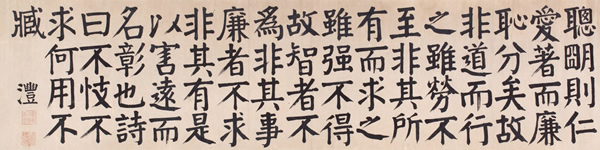 聰明則仁
愛著而廉
恥分矣故
非道而行
之雖勞不
至非其所
有而求之
雖强不得
故智者不
爲非其事
廉者不求
非其有是
以害遠而
名彰也詩
曰不忮不
求何用不
臧
澧